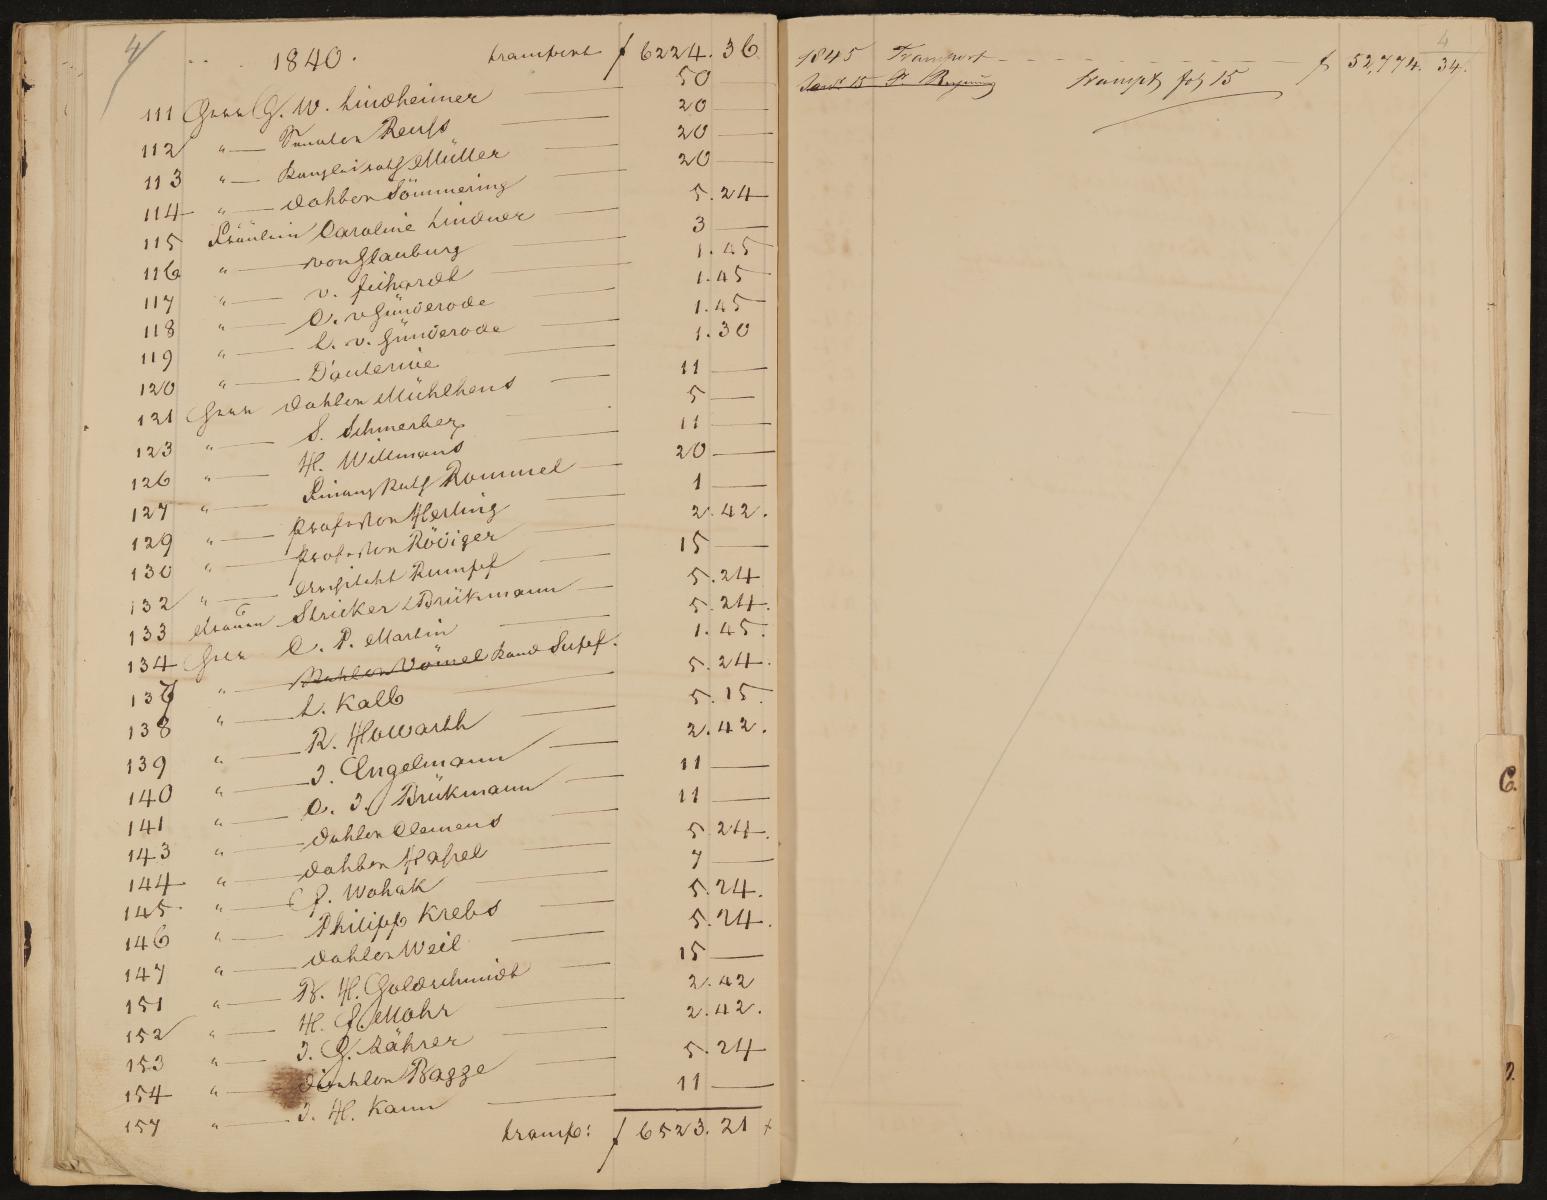 4
1840. transport f 6224. 36
111 Herr G. W. Lindheimer 50
112 " Senator Reuss 20
113 " Kanzleirath Müller 20
114 " Doktor Sömmering 20
115 Fräulein Caroline Lindner 5. 24
116 " von Glauburg 3
117 " v. Fichardt 1. 45
118 " C. v Günderode 1. 45
119 " L. v. Günderode 1. 45
120 " Dauterive 1. 30
121 Herr Doktor Mühlhens 11
123 " S. Schmerber 5
126 " H. Willmans 11
127 " Finanz Rath Rommel 20
129 " Professor Herling 1
130 " Professor Rödiger 2. 42.
132 " Architekt Rumpf 15
133 Stricker & Brükmann 5. 24
134 Herr C. P. Martin 5. 24.
137 " Vömel Kand 1. 45.
138 " L. Kalb 5. 24.
139 " R. Howarth 5. 15.
140 " J. Engelmann 2. 42.
141 " C. J. Brükmann 11
143 " Doktor Clemens 11
144 " Doktor Hassel 5 24.
145 " F. Wohak 7
146 " Philipp Krebs 5. 24.
147 " Doktor Weil 5. 24.
151 " B. H. Goldschmidt 15
152 " H. G. Mohr 2. 42
153 " J. G. Zährer 2. 42.
154 " Doktor Bagge 5. 24
157 " J. H. Kann 11
transp: f 6523. 21
4
1845 Transport f 52,774. 34.
Transpt fol 15
C.
D.